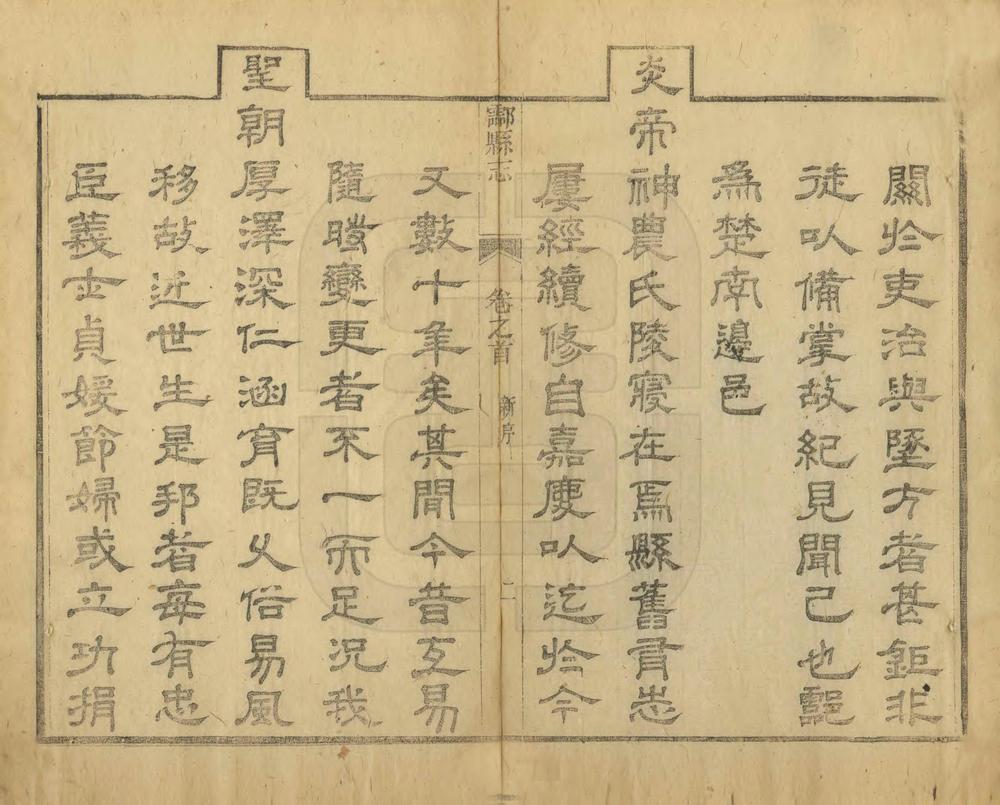 關於吏治與墜方者甚鉅非
徒㠯備掌故紀見聞已也酃
為楚南邊邑
炎帝神農氏陵寢在焉縣舊有志
屢經續修自嘉慶㠯迄於今
酃縣志 卷之首 新序 二
又數十年矣其間今昔互易
隨時變更者不一而足況我
聖朝厚澤深仁涵育既久俗易風
移故近世生是邦者每有忠
臣義士貞媛節婦或立功捐